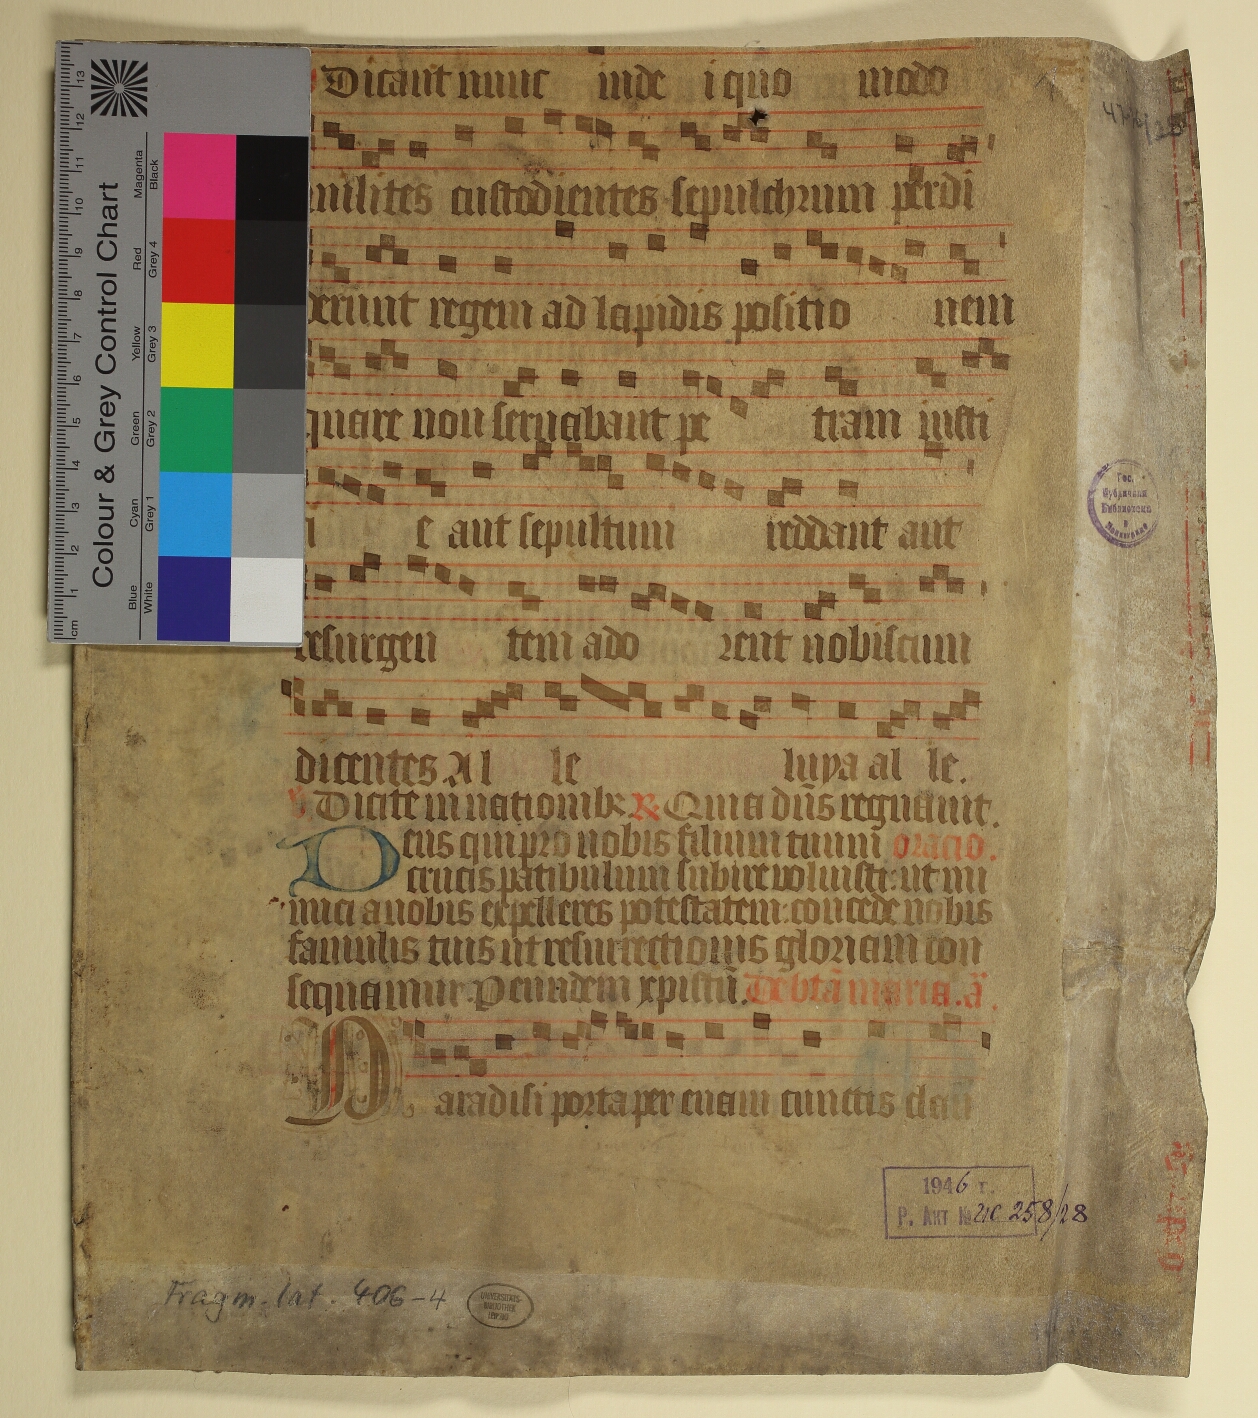 Dicant nunc iude i quo modo
milites custodientes sepulchrum perdi
derunt regem ad lapidis positio nem
quare non seruabant pe tram iusti
e aut sepultum reddant aut
resurgen tem ado rent nobiscum
dicentes Al le luya al le.
Dicite in nationibꝫ ℟ Quia dn̄s regnauit.
Deus qui pro nobis filium tuum oracio.
crucis patibulum subire voluisti: ut ini
mici a nobis expelleres potestatem: concede nobis
famulis tuis ut resurrectionis gloriam con
sequamur. P eundem xpistū. De btā maria. a͞
Paradisi porta per euam cunctis clau
Гос.
Публичная
Библиотека
в
Ленинграде
1946 г.
Р. Акт № ИС 258/28
Fragm. lat. 406-4
UNIVERSITÄTS-
BIBLIOTHEK
LEIPZIG
Colour & Grey Control Chart
Blue Cyan Green Yellow Red Magenta
White Grey 1 Grey 2 Grey 3 Grey 4 Black
cm 1 2 3 4 5 6 7 8 9 10 11 12 13